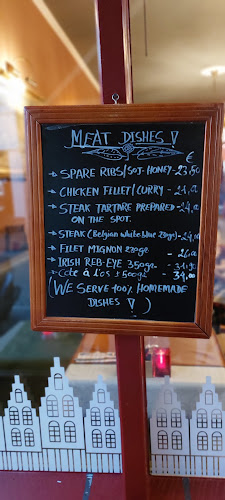 MEAT DISHES !
€
→ SPARE RIBS/SOT-HONEY - 23,50
→ CHICKEN FILLET/CURRY - 21,a
→ STEAK TARTARE PREPARED - 24,a
ON THE SPOT.
→ STEAK (Belgian white blue 250gr) - 24,a
→ FILET MIGNON 220gr - 26a
→ IRISH REB-EYE 350gr -
→ Côte à L'os ± 500gr - 34,00
(WE SERVE 100% HOMEMADE
DISHES ! )